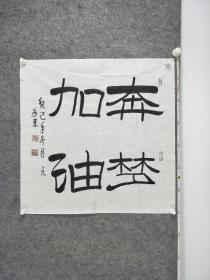 奔梦
加油
癸巳年冬月